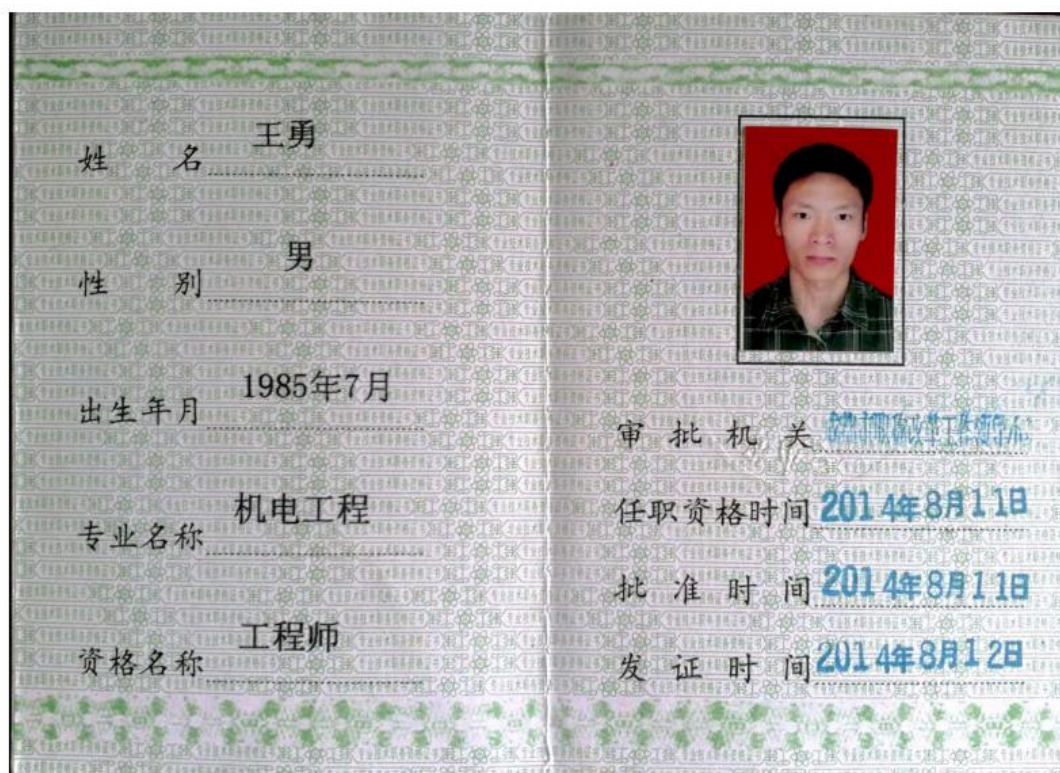 姓 名 王勇
性 别 男
出生年月 1985年7月
专业名称 机电工程
资格名称 工程师
审 批 机 关
任职资格时间 2014年8月11日
批 准 时 间 2014年8月11日
发 证 时 间 2014年8月12日